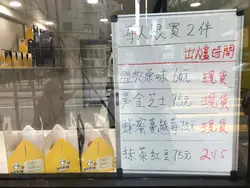 每人限買2件
出爐時間
經典原味 60元 現貨
黃金芝士 75元 現貨
蜂蜜蔓越莓 75元 現貨
抹茶紅豆 75元 215